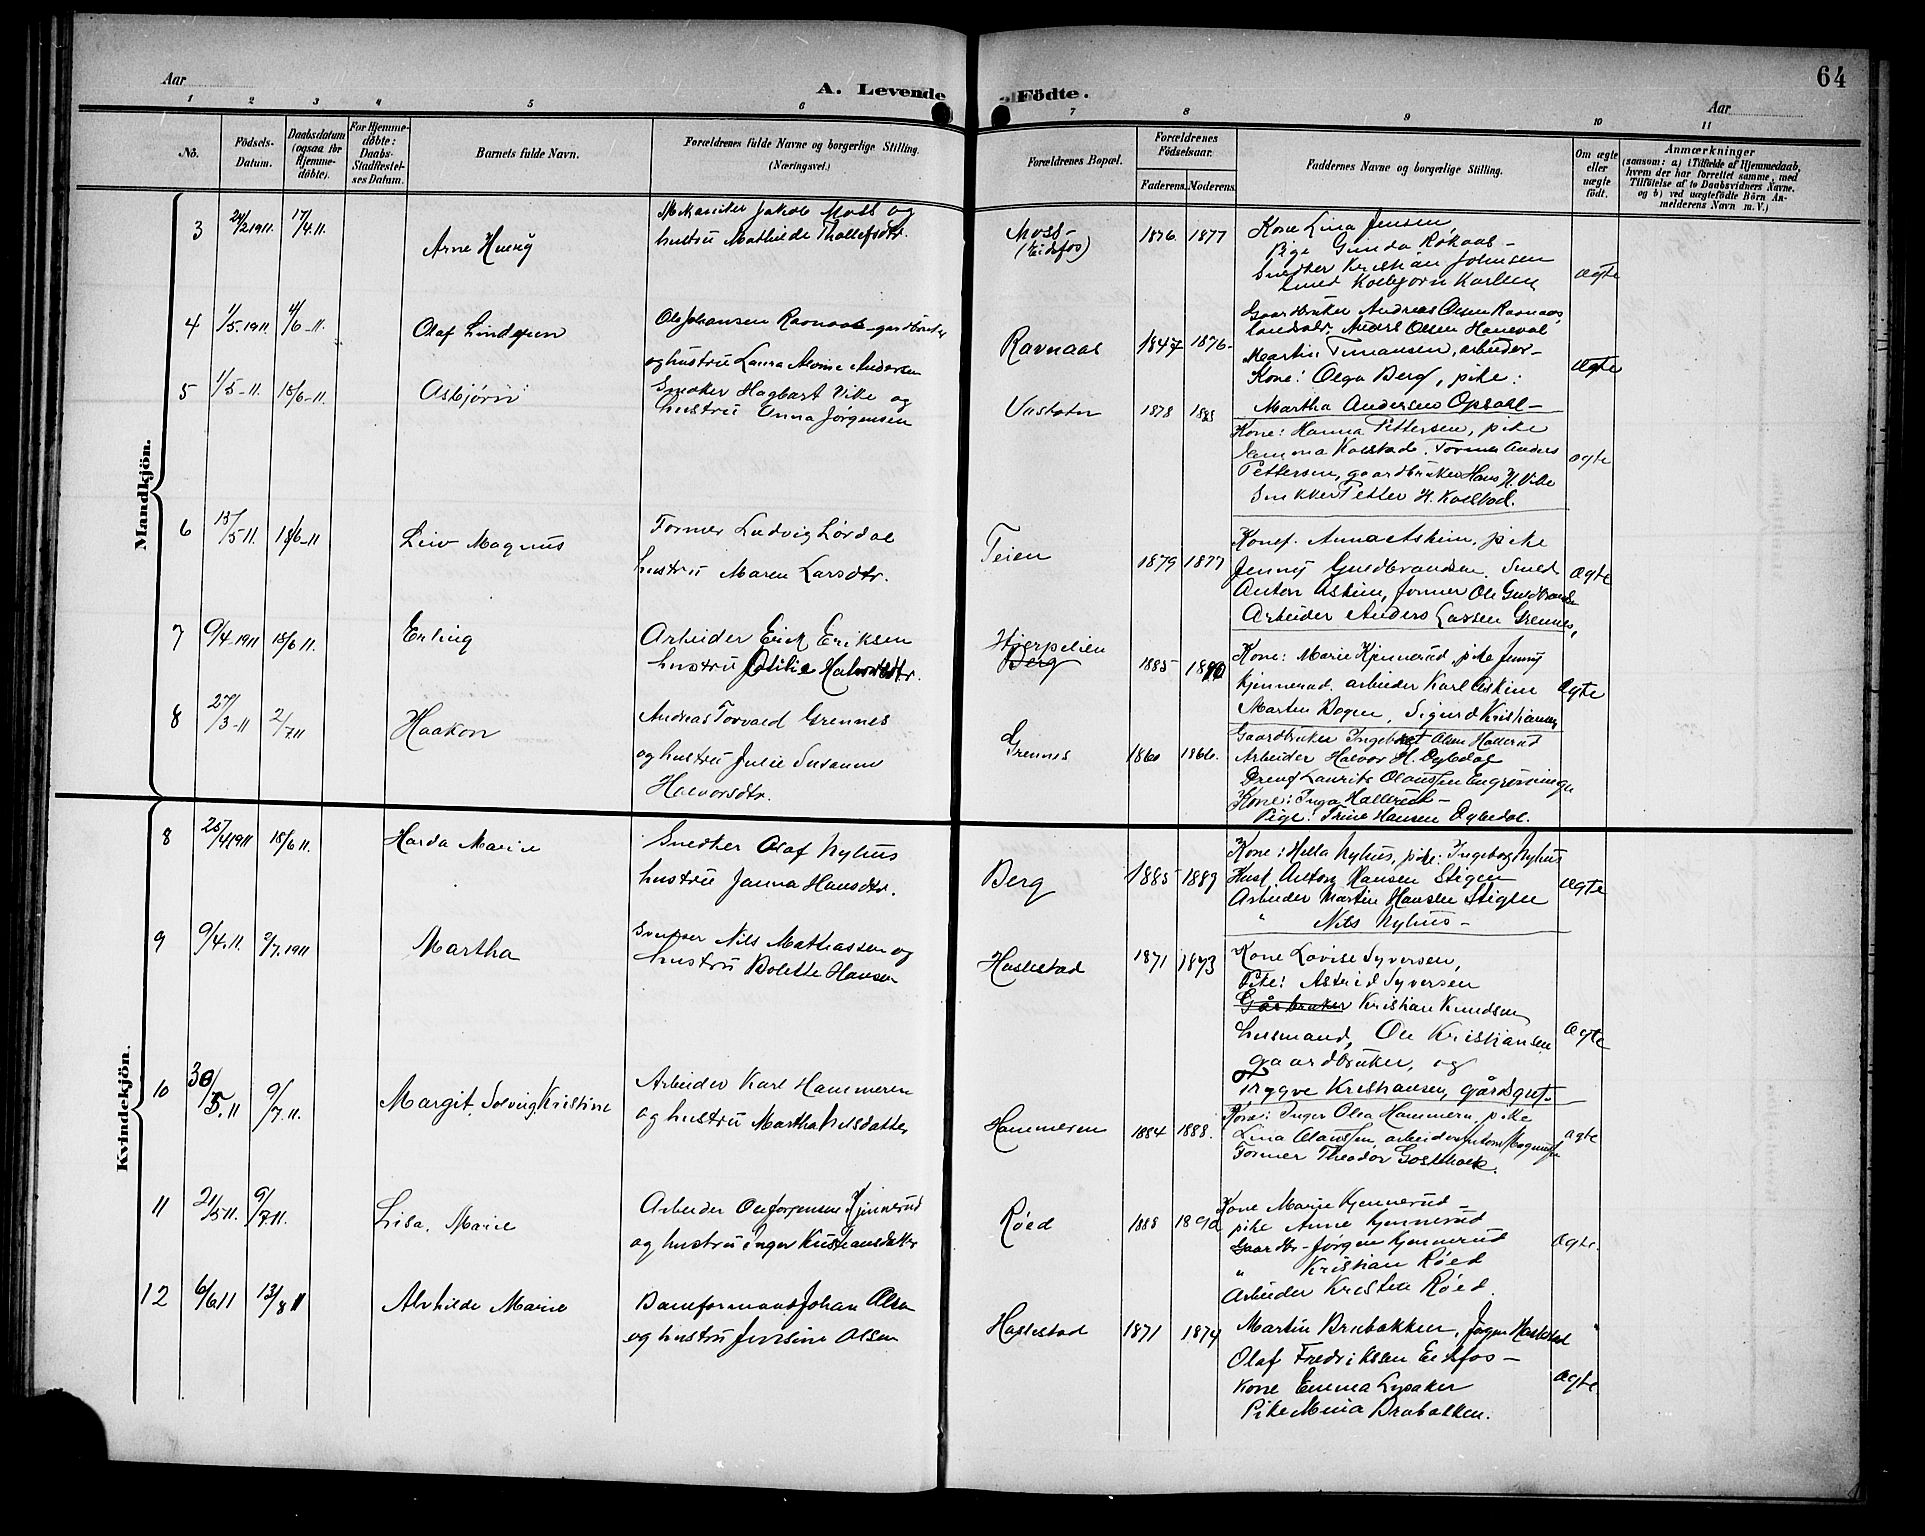 64
Aar
A. Levende Födte.
Aar
1 2 3 4 5 6 7 8 9 10 11
No.
Födsels-Datum.
Daabsdatum (ogsaa for Hjemme-döbte).
For Hjemme-döbte: Daabs-Stadfæstel-ses Datum.
Barnets fulde Navn.
Forældrenes fulde Navne og borgerlige Stilling.
(Næringsvei.)
Forældrenes Bopæl.
Forældrenes Födselsaar.
Faderens. Moderens.
Faddernes Navne og borgerlige Stilling.
Om ægte eller uægte födt.
Anmærkninger
(saasom: a) i Tilfælde af Hjemmedaab, hvem der har forrettet samme, med Tilföielse af to Daabsvidners Navne, og b) ved uægtefödte Börn An-melderens Navn m. V.)
Mandkjön.
3 24/2 1911. 17/4.11. Arne
Mekaniker Jakob Moss og
hustru Mathilde Thollefsdtr.
Moss
(Eidsfos)
1876. 1877
Kone Lina Jensen
Pige Gunda Røkaas
Snedker Kristian Johnsen
Smed Kolbjørn Karlsen
ægte
4 1/5.1911 4/6-11. Olaf Lindgren
Ole Johansen Ravnaas gardbruker
og hustru Laura Alvine Andersen
Ravnaas
1847 1876.
Gaardbruker Andreas Olsen Ravnaas
landhdlr. Anders Olsen Haneval
Martin Timansen, arbeider
Kone: Olga Berg, pike:
Martha Andersens Opsahl
ægte
5 1/5-11. 18/6-11. Asbjørn
Snekker Hagbart Vike og
hustru Anna Jørgensen
1878
Kone: Hanna Pettersen, pike
Kolstad. Former Anders
Pettersen, gaardbruker Hans H. Vike
Snikker Petter H. Kolstad.
ægte
6 15/5 11. 18/6-11 Leiv Magnus
Former Ludvig Lørdal
hustru Maren Larsdtr.
Teien
1879 1877
Anna Askim, pike
Jenny Guldbrandsen. Smed
Anton Askim, former Ole Guldbrands
Arbeider Anders Larsen Grennes,
ægte
7 9/4-1911 18/6 11. Erling
Arbeider Erik Eriksen
hustru Otilie Halvorsdtr.
Hjerpelien
Berg
1885 1890
Kone: Marie Kjennerud, pike Jenny
Kjennerud. arbeider Karl Askim
Martin Bogen, Sigurd Kristiansen
ægte
8 27/3-11 2/7 11 Haakon
Andreas Torvald Grennes
og hustru Julie Susanne
Halvorsdtr.
Grennes
1860 1866.
Gaardbruker Ingebret Olsen Hallerud
Arbeider Halvor H. Dybdal
Dreng Laurits Olaussen Engrønningen
Kone: Inga Hallerud
Pige: Trine Hansen Dybedal.
Kvindekjön.
8 25/4 1911 18/6 11. Harda Marie
Snedker Olaf Nyhus
hustru Janna Hansdtr.
Berg
1885 1889
Kone: Hella Nyhus, pike: Ingeborg Nyhus
Husf. Anton Hansen Stigen
Arbeider Martin Hansen Stigen
" Nils Nyhus
ægte
9 9/4.11. 2/7.1911 Martha
Nils Mathiassen og
hustru Bolette Hansen
Haslestad
1871 1873
Kone Lovise Syversen,
Pike: Astrid Syversen
Gårbruker Kristian Knudsen
husmand, Ole Kristiansen
gaardbruker, og
Trygve Kristiansen, gårdsgut.
ægte
10 30/5.11 9/7.11. Margit, Solveig Kristine
Arbeider Karl Hammeren
og hustru Martha Nilsdatter
Hammeren
1884 1888.
Kone: Inger Olea Hammern, pike
Lina Olaussen, arbeider Anton Magnus
Former Theodor Gosthoek.
ægte
11 21/5 11. 9/7 11. Lisa. Marie
Arbeider Ole Jørgensen Kjennerud
og hustru Inger Kristiansdatter
Røed
1888 1890
Kone Marie Kjennerud
pike Anne Kjennerud
Gaardbr. Jørgen Kjennerud
" Kristian Røed
Arbeider Kristen Røed.
ægte.
12 6/6 11 13/8 11 Alvhilde Marie
Baneformand Johan Olsen
og hustru Jensine Olsen
Haslestad
1871 1874
Martin Brubakken, Jørgen Haslestad
Olaf Fredriksen Eidsfos
Kone Emma Lysaker
Pike Mina Brubakken.
ægte